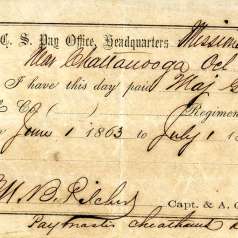 C. S. Pay Office, Headquarters Missione
Near Chattanooga Oct
I have this day paid Maj
Co (        ) Regimen
June 1 1863 to July 1
M. B. Pilcher
Capt. & A. Q
Paymaster Cheathams